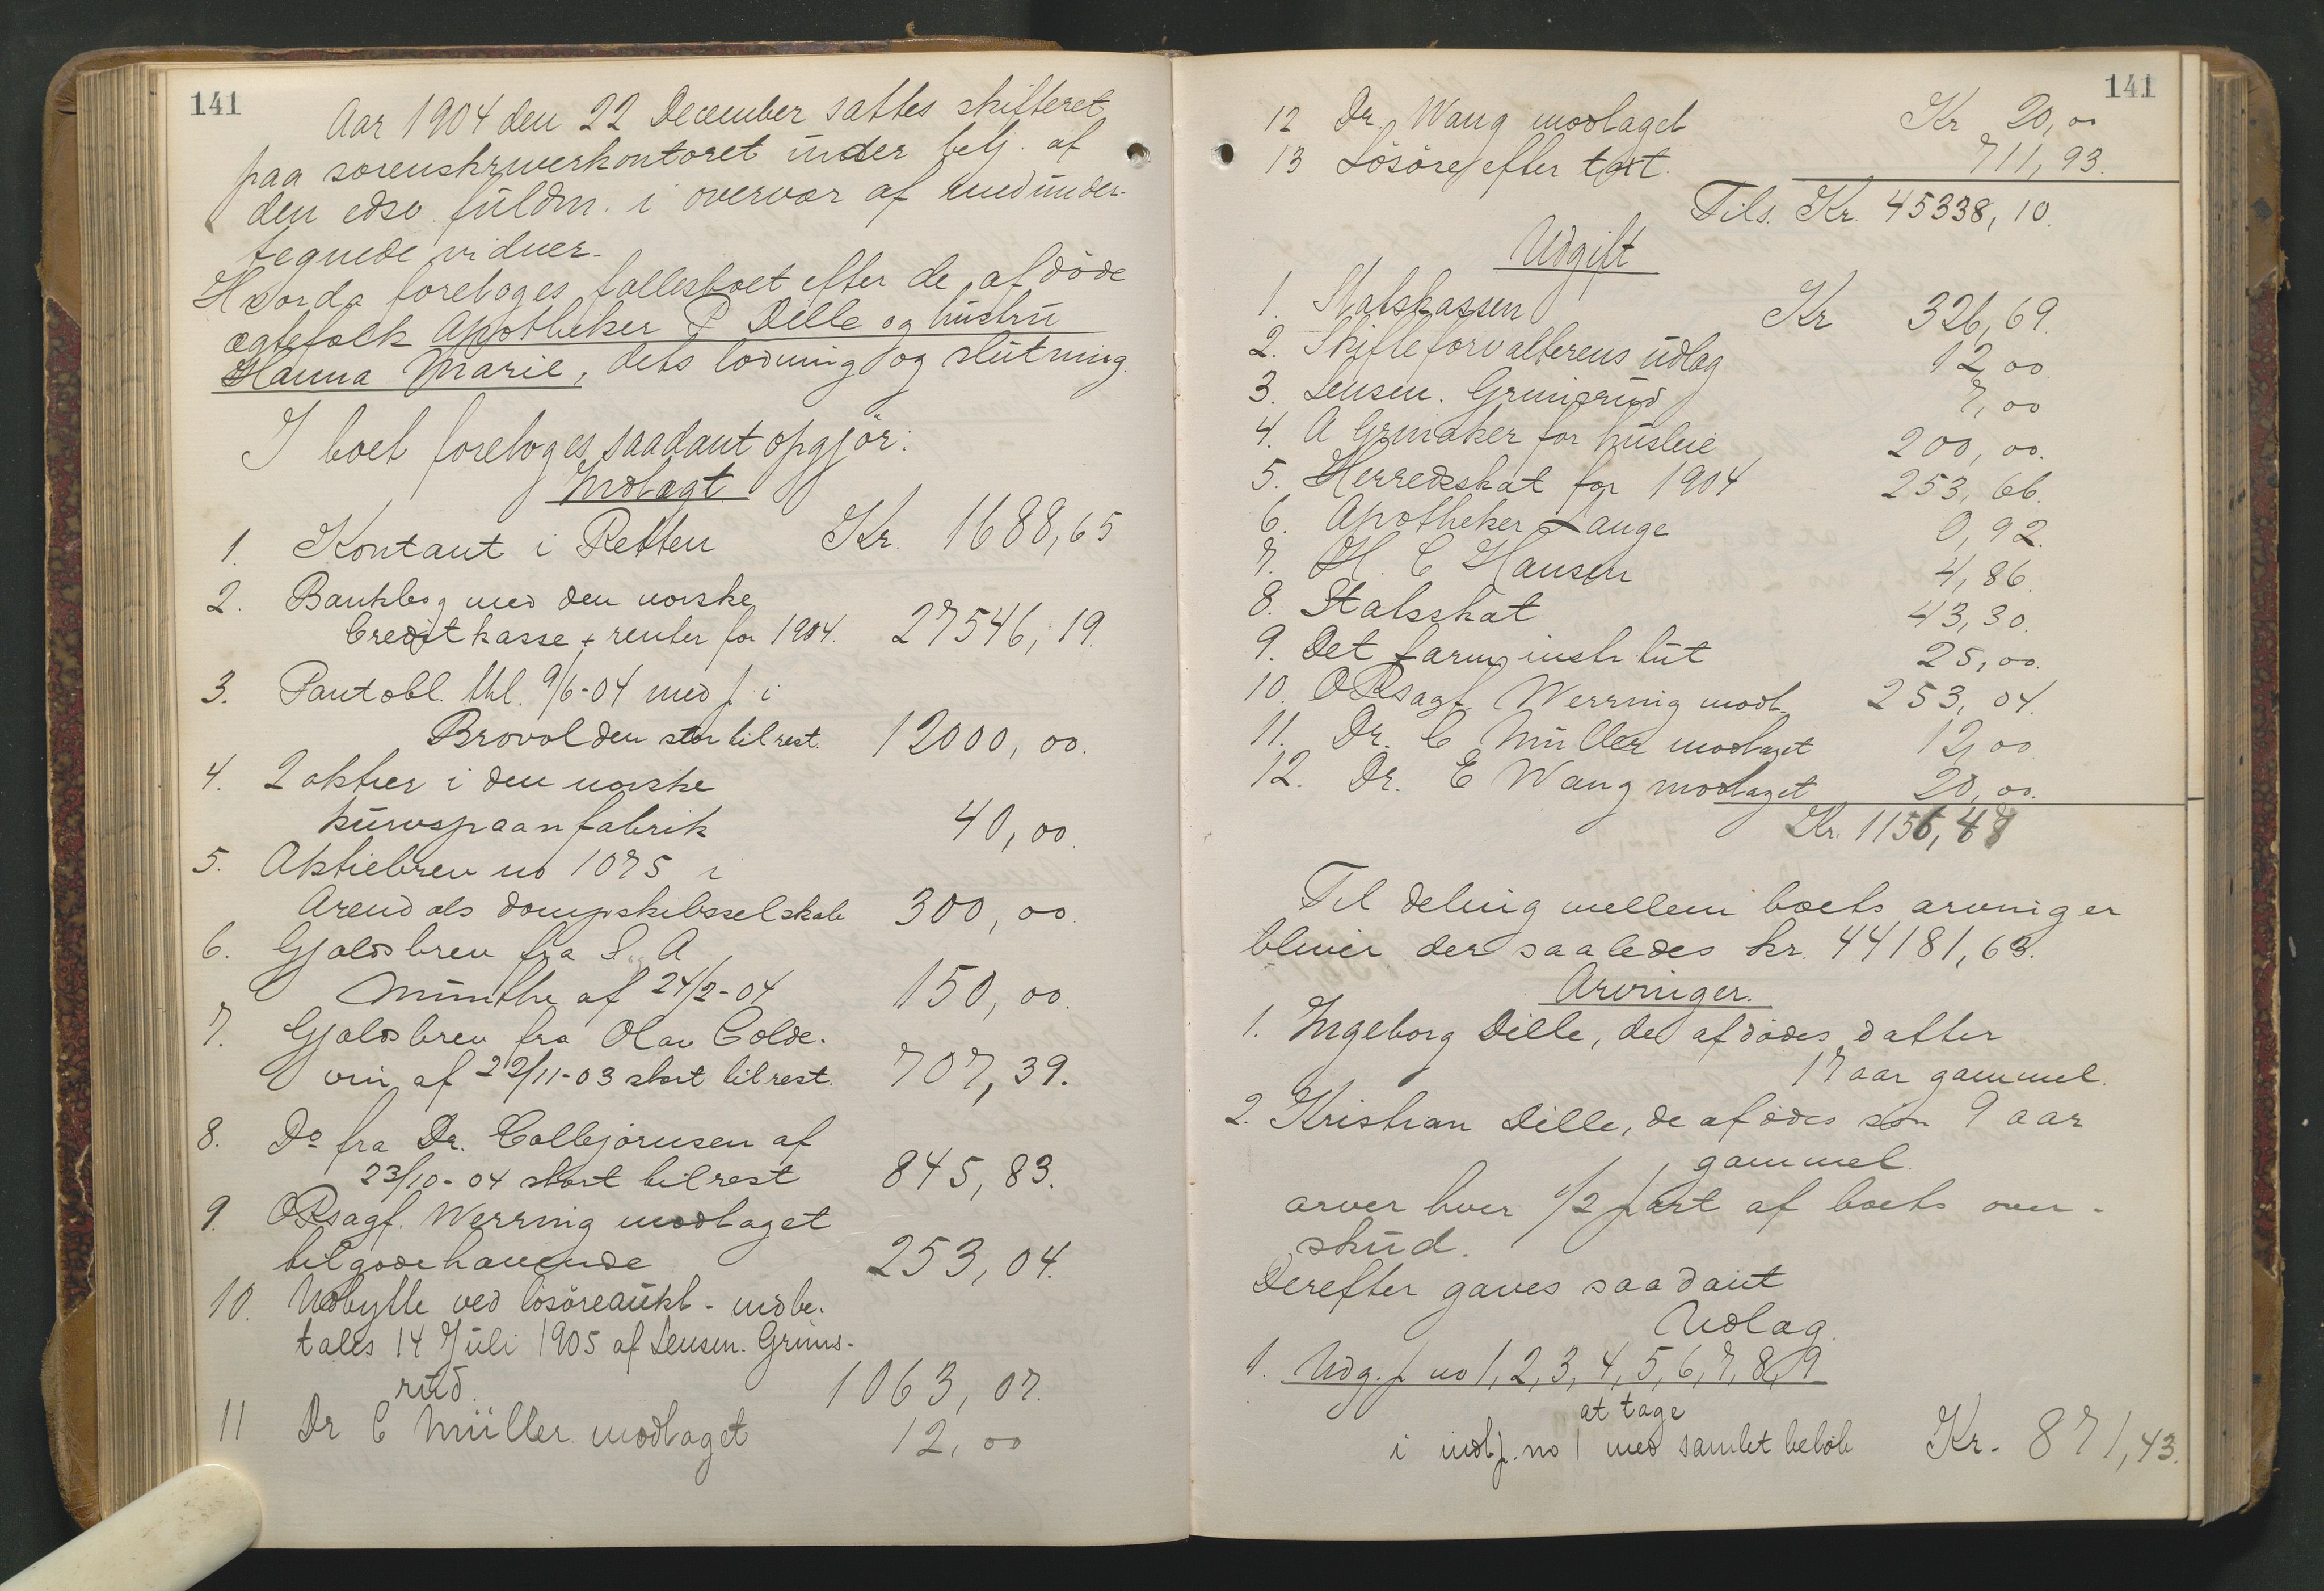 141
Aar 1904 den 22 December sattes skifteret
paa sorenskriverkontoret under betj. af
den edsv. fuldm. i overvær af medunder-
tegnede vidner.
Hvorda foretoges fællesboet efter de afdöde
ægtefolk Apotheker P Dille og hustru
Hanna Marie, dets lodning og slutning.
I boet foretoges saadant opgjör:
Indtægt
1. Kontant i Retten Kr. 1688,65
2. Bankbog med den norske
Creditkasse + renter for 1904. 27546,19.
3. Pantobl. thl. 9/6-04 med p. i
Brovolden stor til rest. 12000,00.
4. 2 aktier i den norske
kurvspaanfabrik 40,00.
5. Aktiebrev no 1075 i
Arendals dampskibsselskab 300,00.
6. Gjældsbrev fra S. A
Münthe af 24/2-04 150,00.
7. Gjældsbrev fra Olav Colde-
vin af 22/11-03 stort til rest. 707,39.
8. Do fra Dr. Collejörnsen af
23/10-04 stort til rest 845,83.
9. ORsagf. Werring modtaget
tilgodehavende 253,04.
10. Udbytte ved lösöreaukt. indbe-
tales 14 Juli 1905 af Lensm. Grims-
rud. 1063,07.
11 Dr C Müller modtaget 12,00
141
12 Dr. Wang modtaget Kr 20,00
13 Lösöre efter taxt. 711,93.
Tils. Kr. 45338,10.
Udgift
1. Statskassen Kr 326,69.
2. Skifteforvalterens udlæg 12,00
3. Lensm. Grimsrud 7,00
4. A Grinaker for husleie 200,00.
5. Herredsskat for 1904 253,66.
6. Apotheker Lange 0,92.
7. H. C Hansen 4,86.
8. Statsskat 43,30.
9. Det farm. institut 25,00.
10. ORsagf. Werring modt. 253,04.
11. Dr. C Müller modtaget 12,00
12. Dr. E Wang modtaget 20,00.
Kr. 1156,47
Til deling mellem boets arvinger
bliver der saaledes kr. 44181,63.
Arvinger.
1. Ingeborg Dille, de afdödes datter
17 aar gammel.
2. Kristian Dille, de afdödes sön 9 aar
gammel.
arver hver 1/2 part af boets over-
skud.
Derefter gaves saadant
Udlæg.
1. Udg.p. no 1, 2, 3, 4, 5, 6, 7, 8, 9
at tage
i indt.p. no 1 med samlet belöb Kr. 871,43.